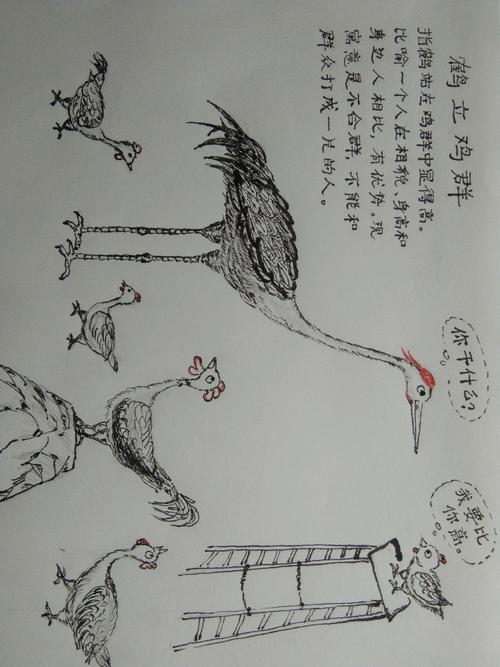 鹤立鸡群
指鹤站在鸡群中显得高。
比喻一个人在相貌、身高和
身边人相比,有优势。现
寓意是不合群,不能和
群众打成一片的人。
你干什么?
我要比
你高。